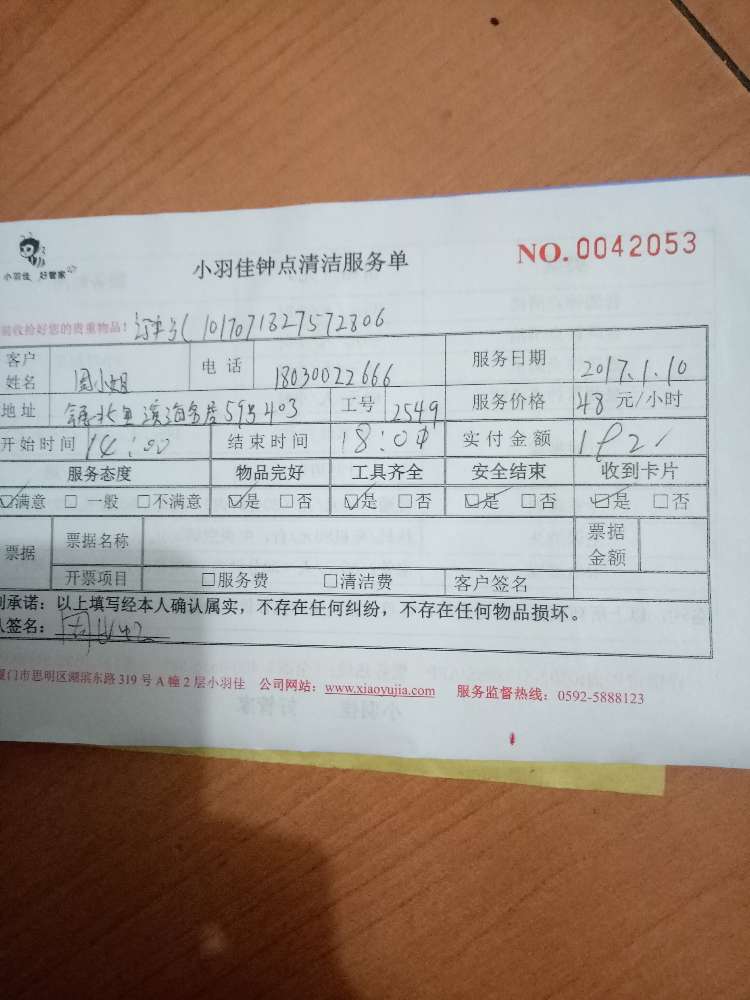 小羽佳 好管家
小羽佳钟点清洁服务单
NO. 0042053
验收给好您的贵重物品! 订单号( 1017071827572806
客户姓名 周小姐 电话 18030022666 服务日期 2017.1.10
地址 滨海名居59号403 工号 2549 服务价格 48 元/小时
开始时间 14:00 结束时间 18:00 实付金额 192
服务态度 物品完好 工具齐全 安全结束 收到卡片
☑满意 □ 一般 □不满意 ☑是 □否 ☑是 □否 ☑是 □否 ☑是 □否
票据 票据名称 票据金额
开票项目 □服务费 □清洁费 客户签名
承诺:以上填写经本人确认属实,不存在任何纠纷,不存在任何物品损坏。
人签名: 周小姐
厦门市思明区湖滨东路 319 号 A 幢 2 层小羽佳 公司网站:www.xiaoyujia.com 服务监督热线:0592-5888123